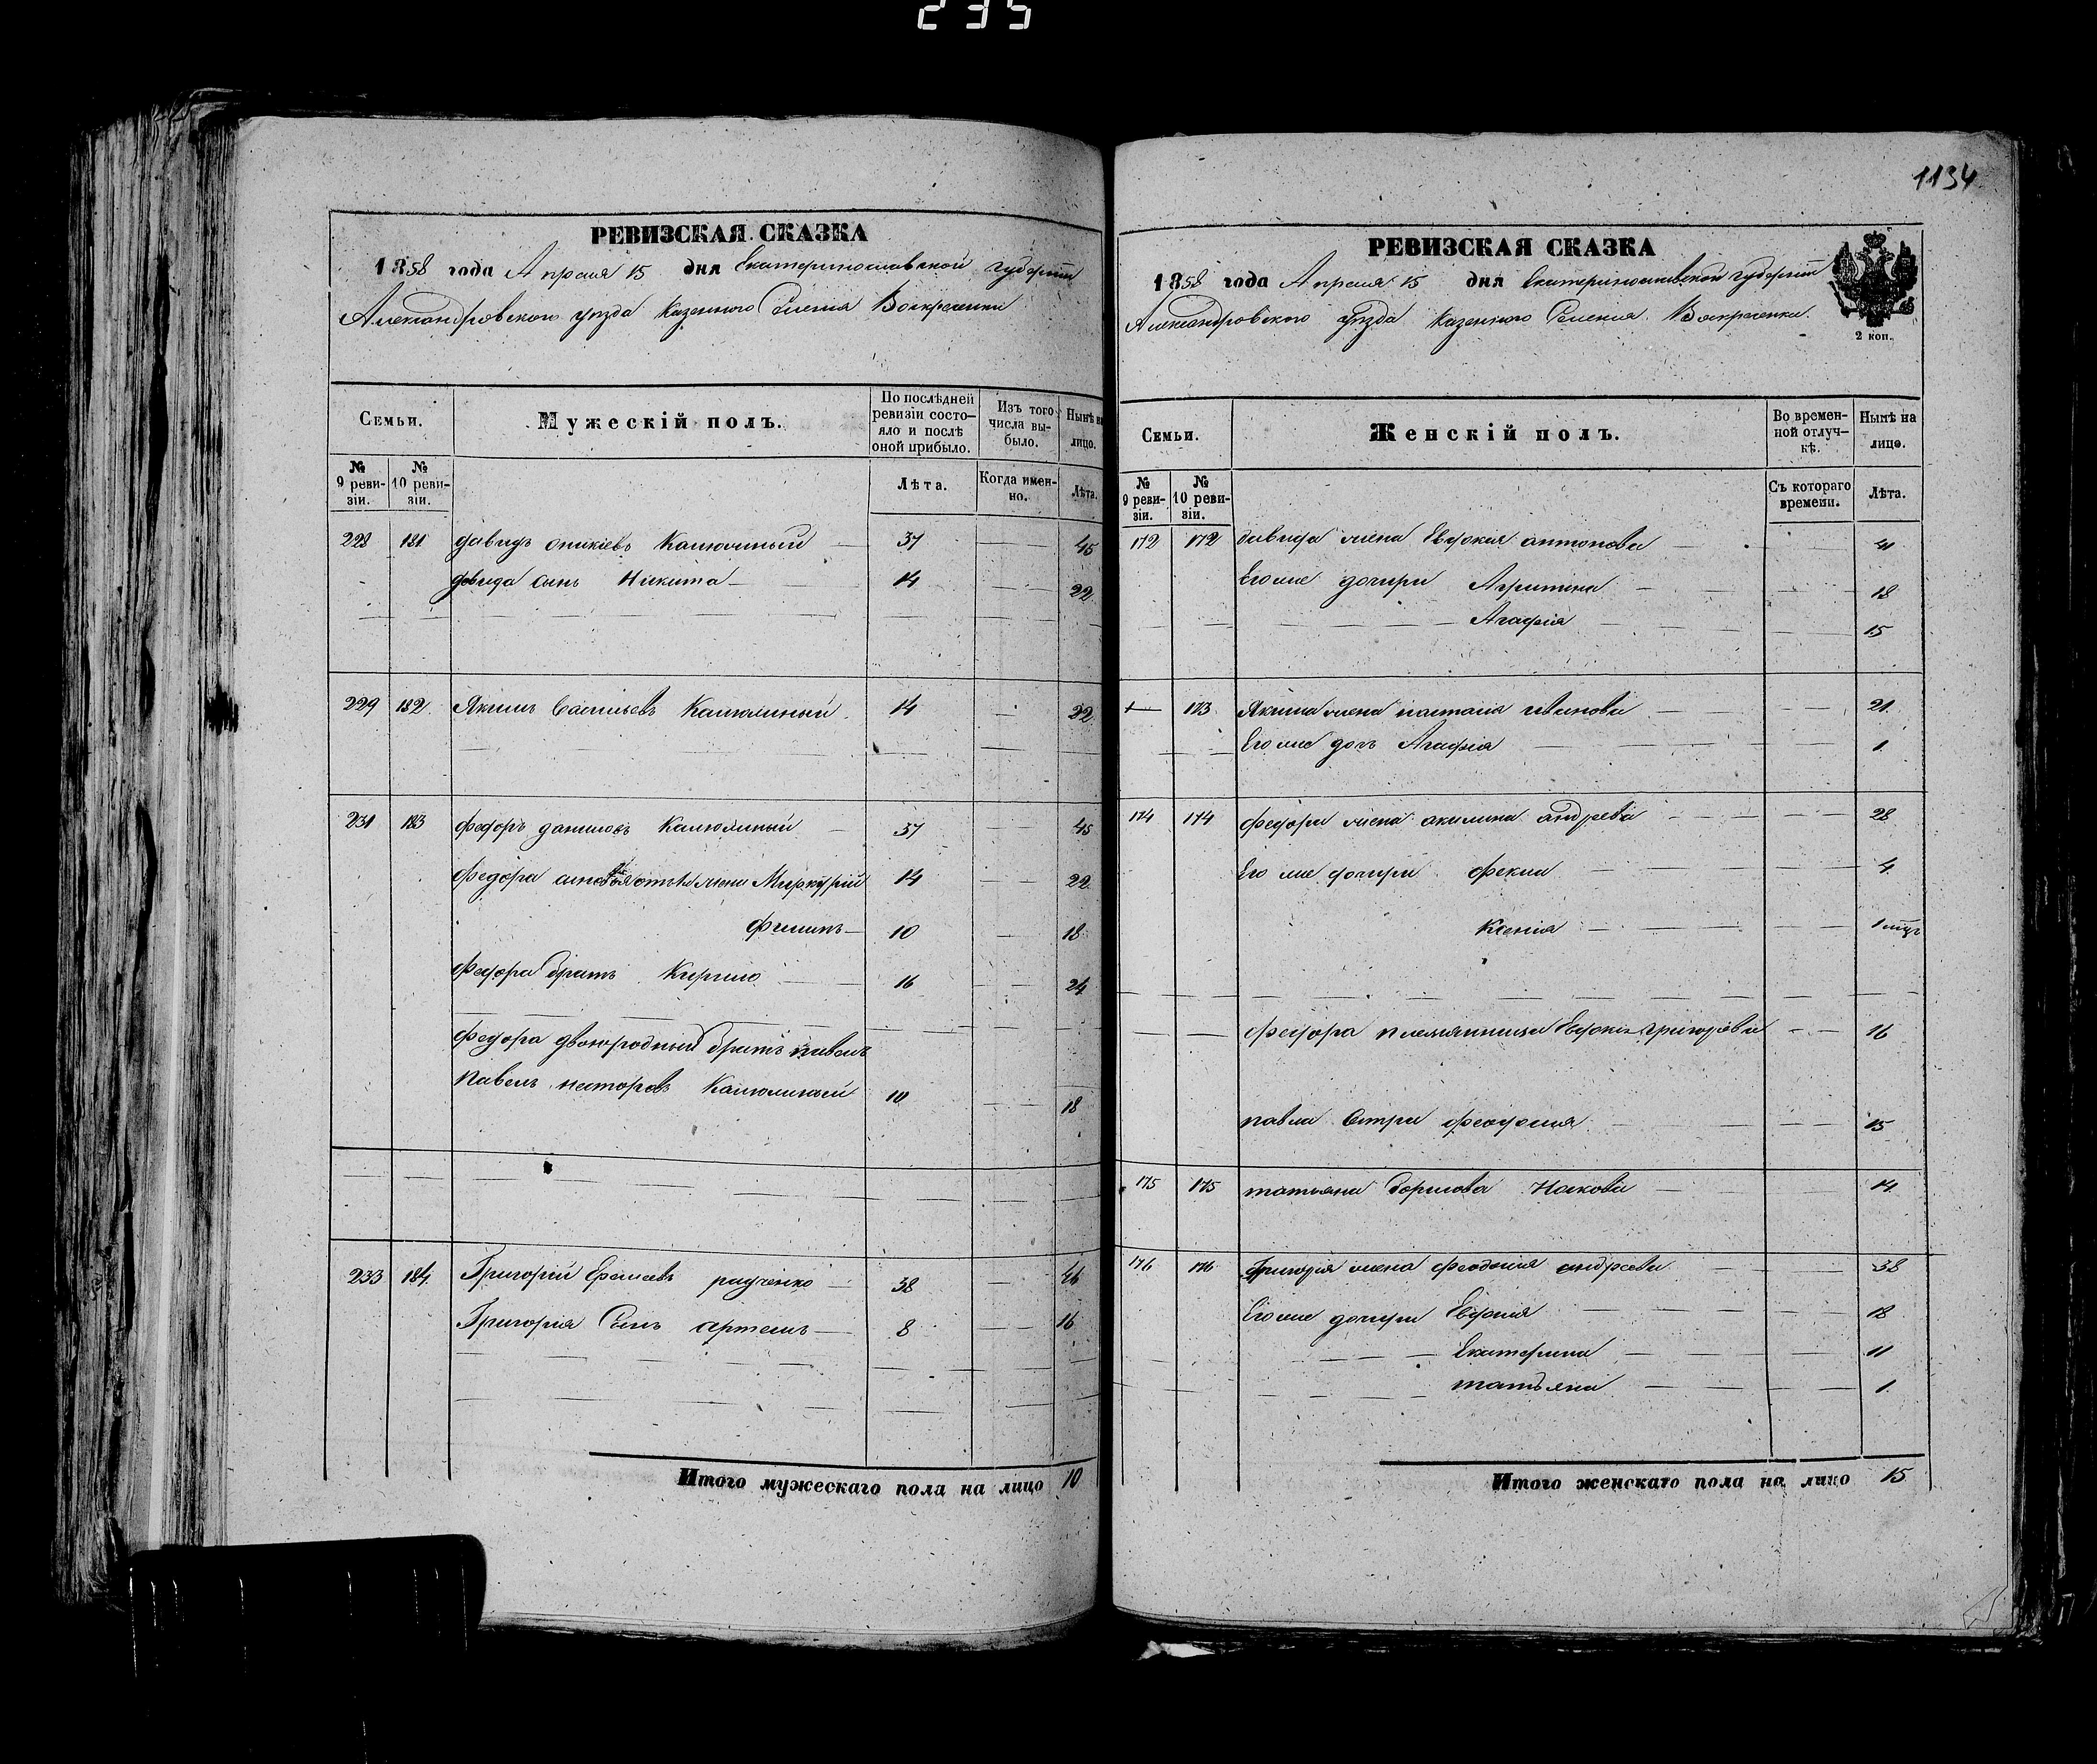 235
РЕВИЗСКАЯ СКАЗКА
1858 года Апреля 15 дня Екатеринославской губернии
Александровского уезда Казенного Селения Воскресенки
Семьи.
Мужескій полъ.
По послѣдней ревизіи состояло и послѣ оной прибыло.
Изъ того числа выбыло.
Нынѣ на лицо.
№ 9 ревизіи.
№ 10 ревизіи.
Лѣта.
Когда именно.
Лѣта.
228 181 давидъ Калюжный 37 45
давида сынъ Никита 14 22
229 182 Якимъ Васильевъ Калюжный 14 22
231 183 федоръ даниловъ Калюжный 37 45
федора жены Меркурий 14 22
филипъ 10 18
федора братъ Кирило 16 24
федора двоюродный братъ павелъ
павелъ несторовъ Калюжный 10 18
233 184 Григорий радченко 38 46
Григория Сынъ артемъ 8 16
Итого мужескаго пола на лицо 10
1134
РЕВИЗСКАЯ СКАЗКА
2 коп.
1858 года Апреля 15 дня Екатеринославской губернии
Александровского уезда Казенного Селения Воскресенки
Семьи.
Женскій полъ.
Во временной отлучкѣ.
Нынѣ на лицо.
№ 9 ревизіи.
№ 10 ревизіи.
Съ котораго времени.
Лѣта.
172 172 давида жена Евдокия антонова 41
Его же дочери 18
Агафія 15
173 Якима жена наталия иванова 21
Его же дочь Агафія 1
174 174 федора жена акилина андреева 28
Его же дочери фекла 4
Ксенія 1 мцъ
федора племянница Евдокия григорьева 16
павла Сестра феодосия 15
175 175 татьяна борисова Носкова 14
176 176 Григория жена феодосия андреева 38
Его же дочери Евдокия 18
Екатерина 11
татьяна 1
Итого женскаго пола на лицо 15